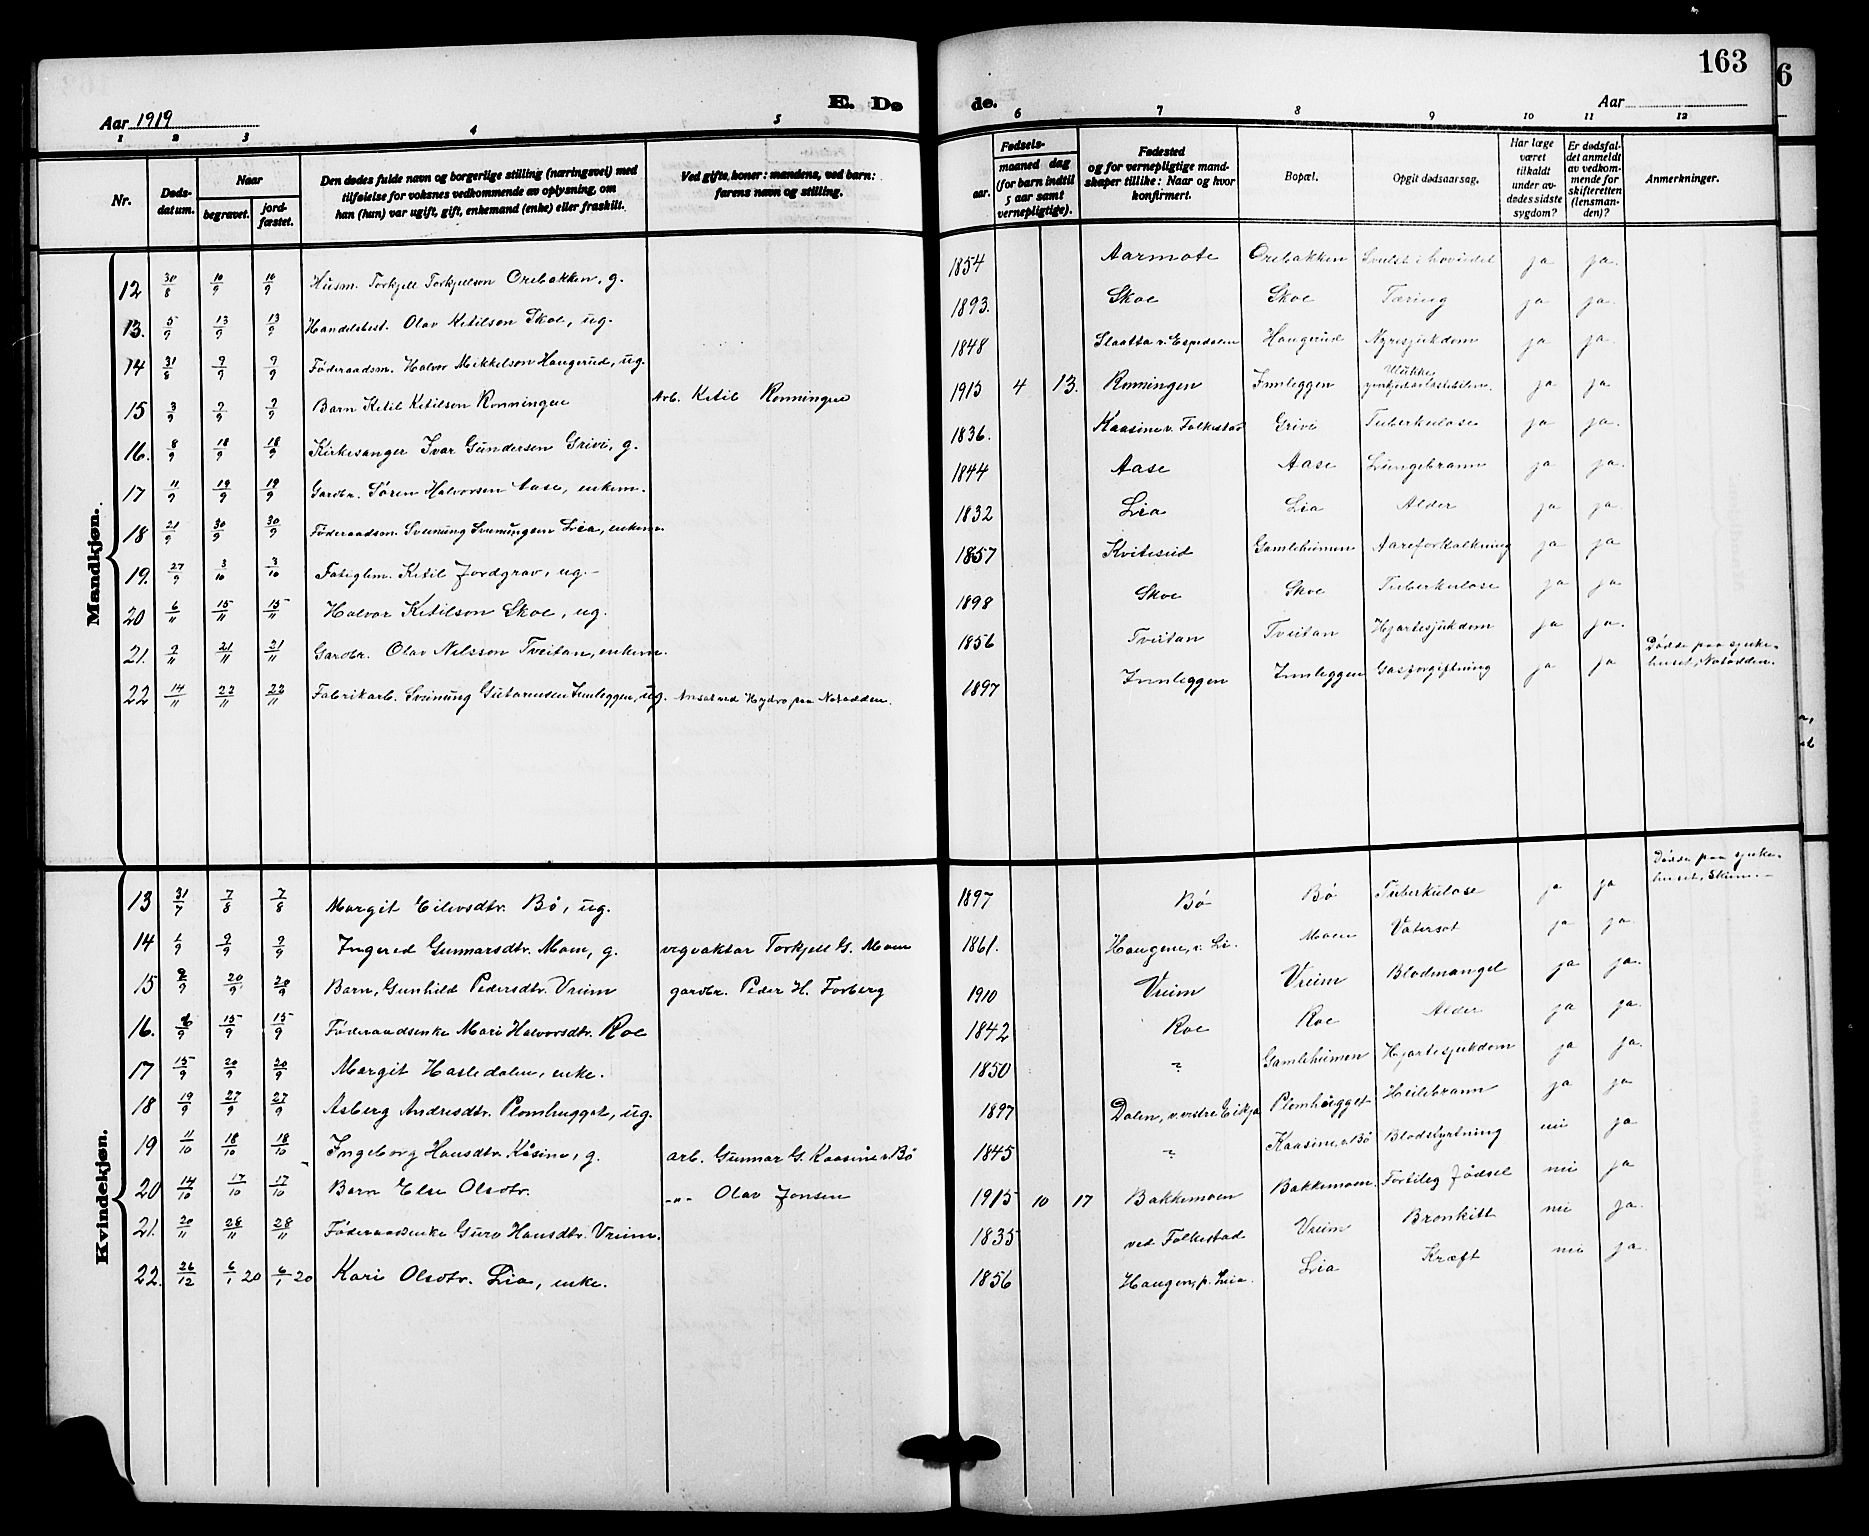 163
6
Aar 1919
E. Dø
de.
Aar
1 2 3 4 5 6 7 8 9 10 11 12
Nr.
Døds-
datum.
Naar
begravet.
jord-
fæstet.
Den dødes fulde navn og borgerlige stilling (næringsvei) med
tilføielse for voksnes vedkommende av oplysning, om
han (hun) var ugift, gift, enkemand (enke) eller fraskilt.
Ved gifte koner: mandens, ved barn:
farens navn og stilling.
Fødsels-
aar.
maaned dag
(for barn indtil
5 aar samt
vernepligtige).
Fødested
og for vernepligtige mand-
skaper tillike: Naar og hvor
konfirmert.
Bopæl.
Opgit dødsaarsag.
Har læge
været
tilkaldt
under av-
dødes sidste
sygdom?
Er dødsfal-
det anmeldt
av vedkom-
mende for
skifteretten
(lensman-
den)?
Anmerkninger.
Mandkjøn.
12 30/8 10/9 10/9 Husm. Torkjell Torkjelson Orebakken, g. 1854 Aarmote Orebakken Svulst i hovudet ja ja.
13. 5/9 13/9 13/9 Handelsbest. Olav Ketilson Skoe, ug. 1893. Skoe Skoe Tæring ja ja.
14 31/8 9/9 9/9 Føderaadsm. Halvor Mikkelson Haugerud, ug. 1848 Slaatta v. Espedalen Haugerud Nyresjukdom ja ja.
15 3/9 9/9 9/9 Barn Ketil Ketilson Rønningen Arb. Ketil Rønningen 1915 4 13. Rønningen Innleggen Ulukke ja ja
16. 8/9 18/9 18/9 Kirkesanger Ivar Gundersen Grivi, g. 1836. Kaasine v. Folkestad Grivi Tuberkulose ja ja.
17 11/9 19/9 19/9 Gardbr. Søren Halvorsen Aase, enkem. 1844 Aase Aase Lungebrann ja ja.
18 21/9 30/9 30/9 Føderaadsm. Sveinung Sveinungsen Lia, enkem. 1832 Lia Lia Alder ja ja.
19. 27/9 3/10 3/10 Fatiglem. Ketil Jordgrav, ug. 1857 Kviteseid Gamleheimen Aareforkalkning ja ja
20 6/11 15/11 15/11 Halvor Ketilson Skoe, ug. 1898 Skoe Skoe Tuberkulose ja ja.
21. 9/11 21/11 21/11 Gardbr. Olav Nilsson Tveitan, enkem. 1856 Tveitan Tveitan Hjartesjukdom ja ja.
22 14/11 22/11 22/11 Fabrikarb. Sveinung Gutormsen Innleggen, ug. Ansat ved Hydro paa Notodden. 1897 Innleggen Innleggen Gasforgiftning ja ja Dødde paa sjuke-
huset, Notodden.
Kvindekjøn.
13 31/7 7/8 7/8 Margit Eilevsdtr. Bø, ug. 1897 Bø Bø Tuberkulose ja ja Dødde paa sjuke-
huset, Skien.
14 1/9 9/9 9/9 Ingerd Gunnarsdtr. Moen, g. vegvaktar Torkjell G. Moen 1861. Haugene, v. Li. Moen Vatersot ja ja.
15 9/9 20/9 20/9 Barn, Gunhild Pedersdtr. Vreim gardbr. Peder H. Forberg 1910 Vreim Vreim Blodmangel ja ja.
16. 6/9 15/9 15/9 Føderaadsenke Mari Halvorsdtr. Roe 1842 Roe Roe Alder ja ja.
17 15/9 20/9 20/9 Margit Hasledalen, enke. 1850 ? Gamleheimen Hjartesjukdom ja ja.
18 19/9 27/9 27/9 Asberg Andresdtr. Plomhugget, ug. 1897 Dalen, v. vestre Eikja Plomhugget Heilebrann ja ja
19 11/10 18/10 18/10 Ingeborg Hansdtr. Kåsine, g. arb. Gunnar G. Kaasine v. Bø 1845 ? Kaasine, v. Bø Blodstyrtning nei ja
20 14/10 17/10 17/10 Barn Else Olsdtr. -"- Olav Jonsen 1915 10 17 Bakkemoen Bakkemoen Fortileg fødsel nei ja
21. 20/11 28/11 28/11 Føderaadsenke Guro Hansdtr. Vreim. 1835 ved Folkestad Vreim Bronkitt nei ja.
22. 26/12 6/1 20 6/1 20 Kari Olsdtr. Lia, enke. 1856 Haugen, p. Lia. Lia Kræft nei ja.